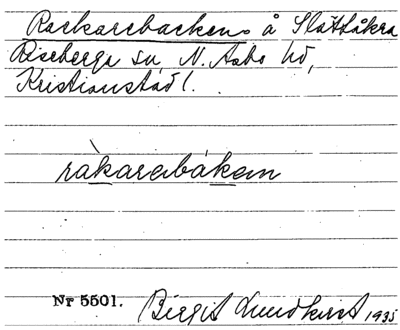 Rackarebacken å Slättåkra
Riseberga sn N. Åsbo hd,
Kristianstad l.
ràkarebáken
Nr 5501. Birgit Lundkvist 1935